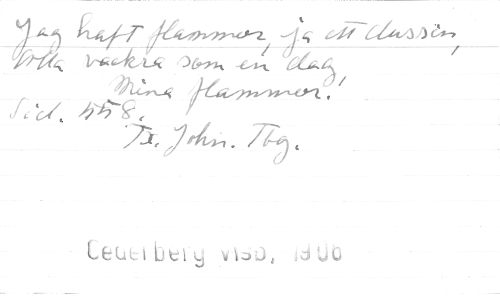 Jag haft flammor, ja ett dussin,
Alla vackra som en dag,
Mina flammor.
Sid. 558.
Tr. John. Tbg.
Cederberg Visb, 1906